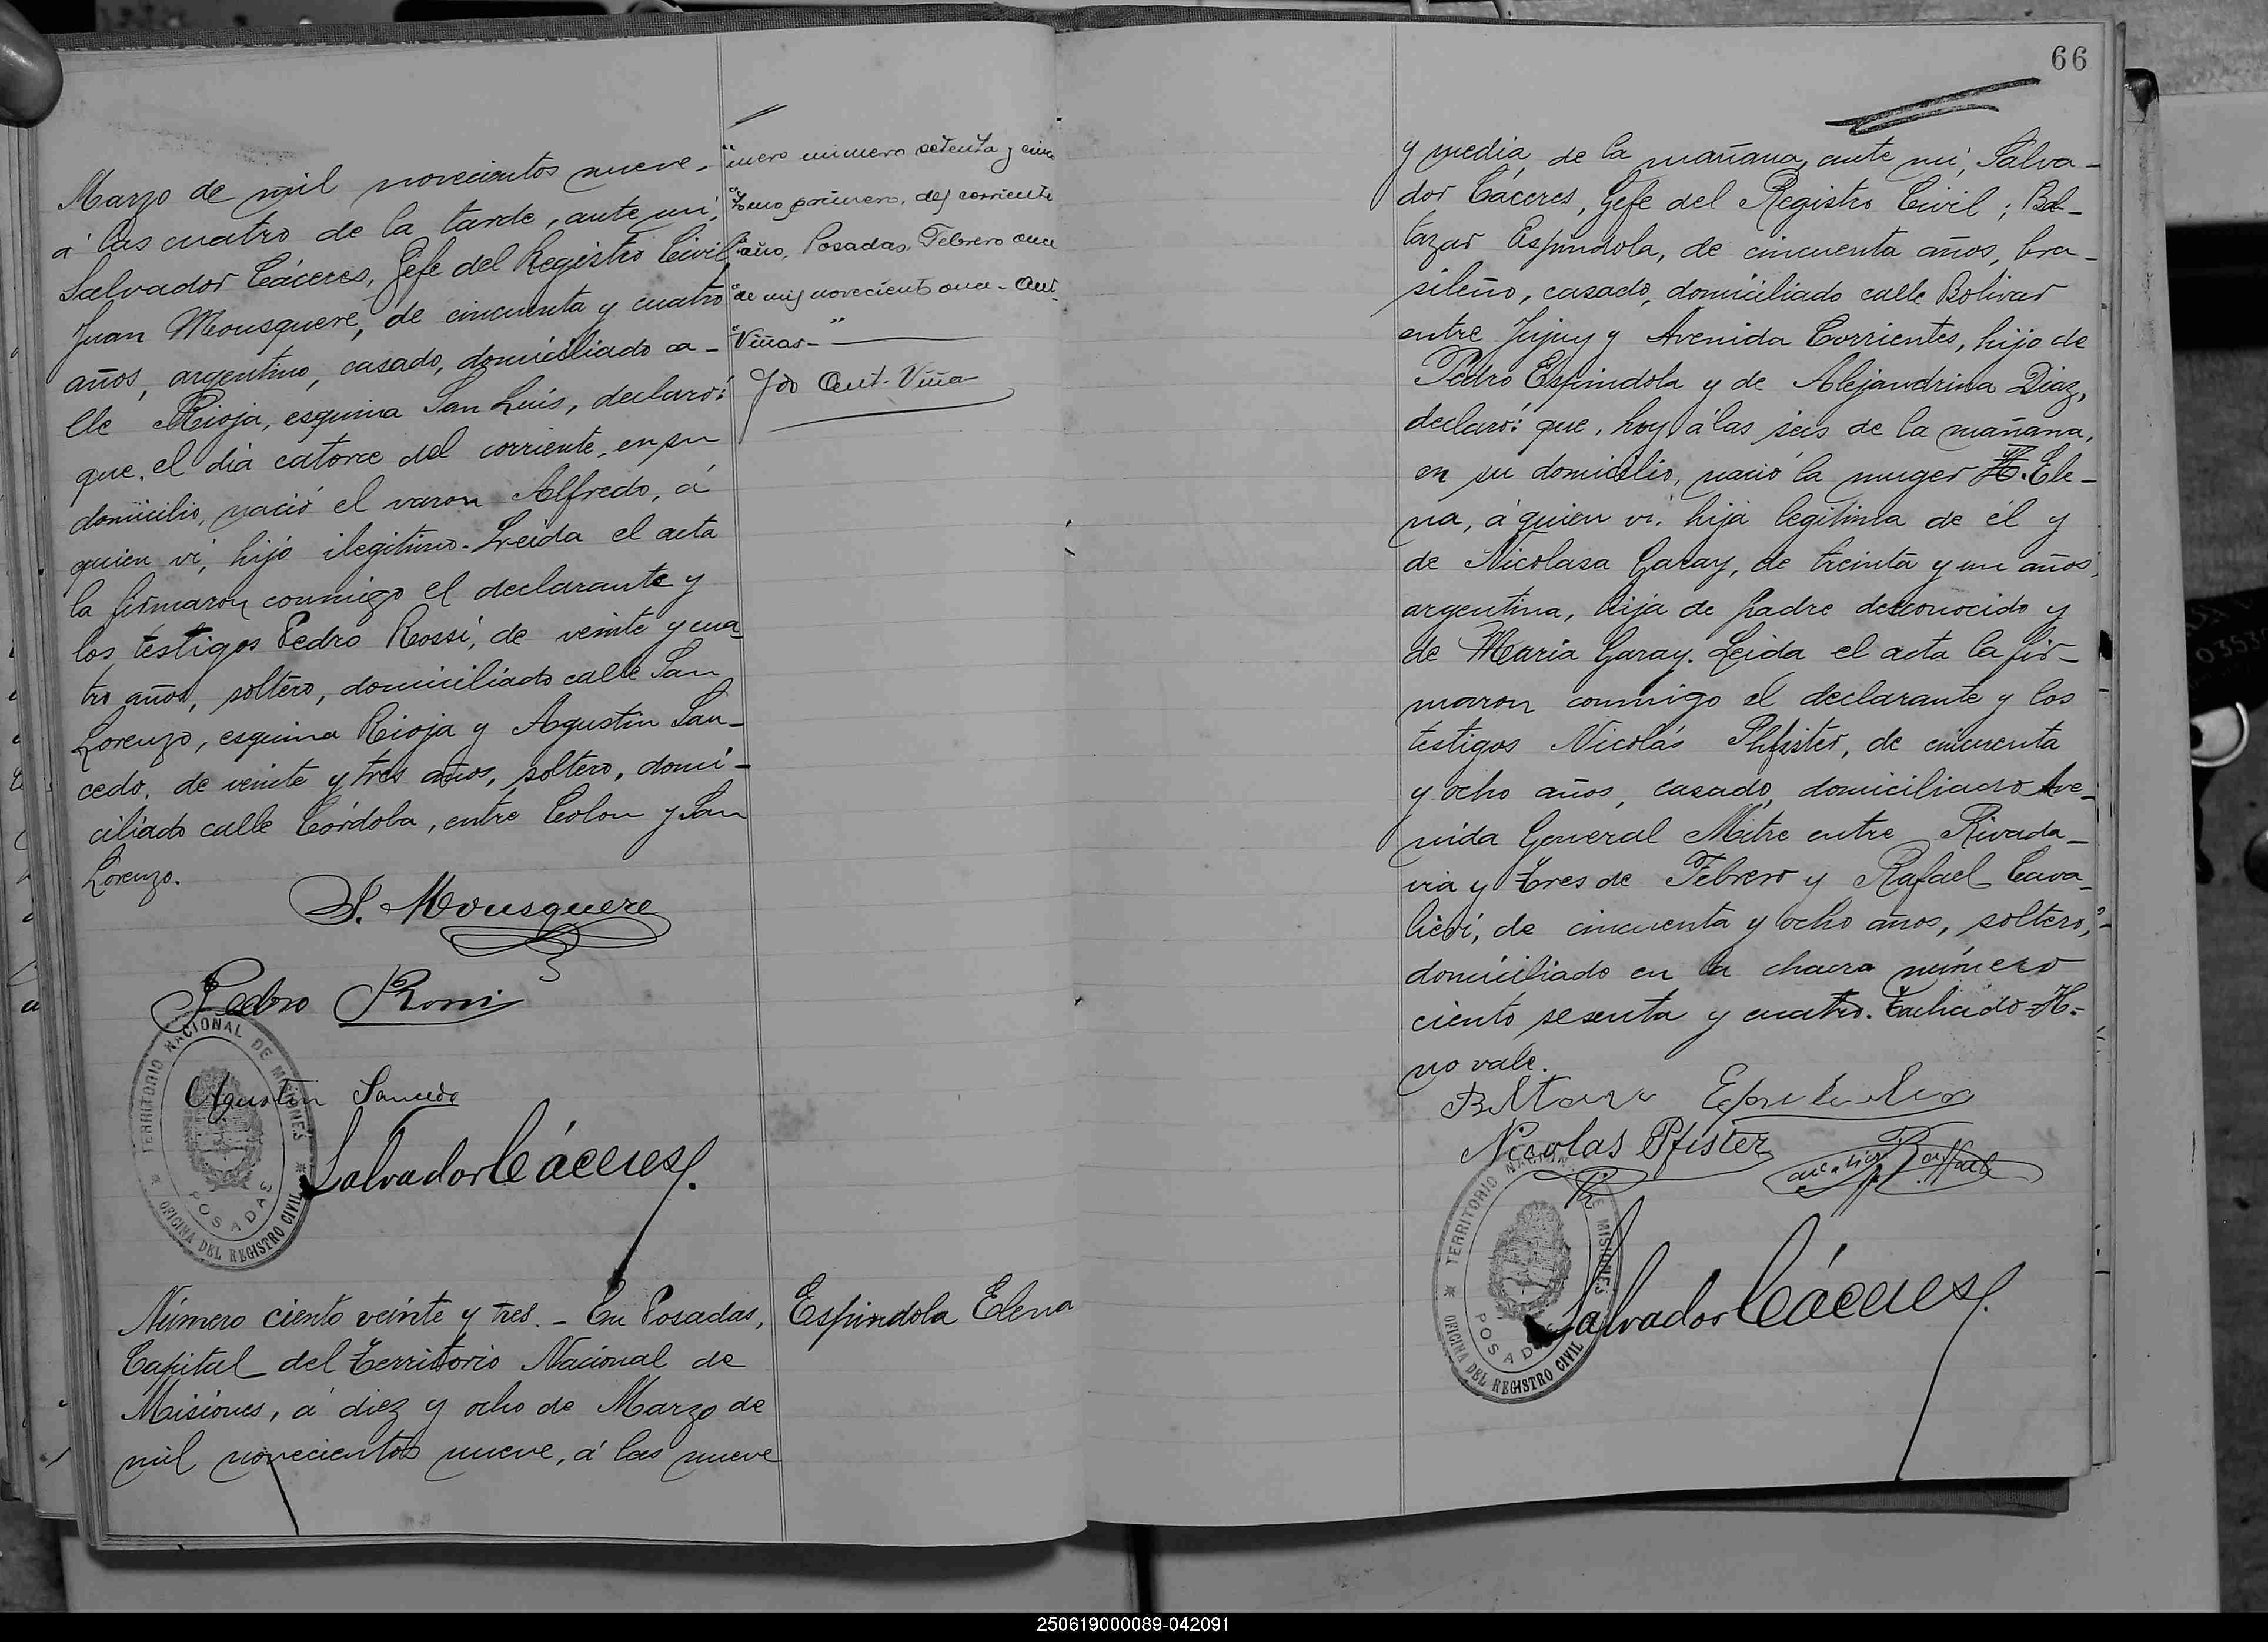 Marzo de mil novecientos nueve.-
á las cuatro de la tarde, ante mí,
Salvador Cáceres, Gefe del Registro Civil
Juan Mousquere, de cincuenta y cuatro
años, argentino, casado, domiciliado ca-
lle Rioja, esquina San Luis, declaró:
que, el dia catorce del corriente, en su
domicilio, nació el varon Alfredo, á
quien vi, hijo ilegitimo. Leida el acta
la firmaron conmigo el declarante y
los testigos Pedro Rossi, de veinte y cua-
tro años, soltero, domiciliado calle San
Lorenzo, esquina Rioja y Agustin Sau-
cedo, de veinte y tres años, soltero, domi-
ciliado calle Córdoba, entre Colon y San
Lorenzo.
J. Mousquere
Pedro Rossi
Agustin Saucedo
Salvador Cáceres
TERRITORIO NACIONAL DE MISIONES
POSADAS
OFICINA DEL REGISTRO CIVIL
"mero número setenta y cinco
"Tomo primero, del corriente
"año, Posadas, Febrero once
"de mil novecient once - Ant.
"Viñas- "
Fdo Ant. Viña
Número ciento veinte y tres. - En Posadas,
Capital del Territorio Nacional de
Misiones, á diez y ocho de Marzo de
mil novecientos nueve, á las nueve
Espindola Elena
66
y media de la mañana, ante mí, Salva-
dor Cáceres, Gefe del Registro Civil; Bal-
tazar Espindola, de cincuenta años, bra-
sileño, casado, domiciliado calle Bolivar
entre Jujuy y Avenida Corrientes, hijo de
Pedro Espindola y de Alejandrina Diaz,
declaró: que, hoy á las seis de la mañana,
en su domicilio, nació la muger H. Ele-
na, á quien vi, hija legitima de él y
de Nicolasa Garay, de treinta y un años,
argentina, hija de padre desconocido y
de Maria Garay. Leida el acta la fir-
maron conmigo el declarante y los
testigos Nicolás Phfister, de cincuenta
y ocho años, casado, domiciliado Ave-
nida General Mitre entre Rivada-
via y Tres de Febrero y Rafael Cava-
lieri, de cincuenta y ocho años, soltero,
domiciliado en la chacra número
ciento sesenta y cuatro. Tachado-H-
no vale.
Espindola
Nicolas Pfister
Raffaele
Salvador Cáceres
TERRITORIO NACIONAL DE MISIONES
POSADAS
OFICINA DEL REGISTRO CIVIL
250619000089-042091